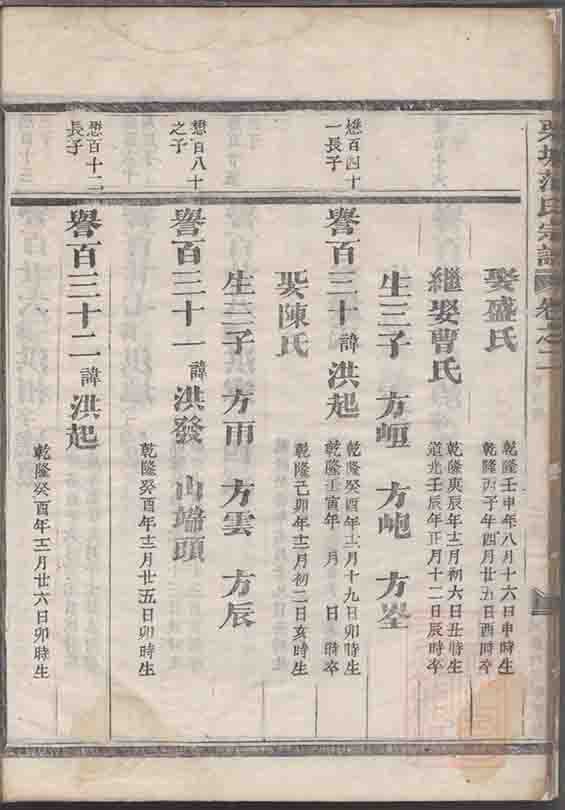 氏宗譜 卷之二
娶盛氏
乾隆壬申年八月十六日申時生
乾隆丙子年四月廿五日酉時卒
繼娶曹氏
乾隆庚辰年十二月初六日丑時生
道光壬辰年正月十二日辰時卒
生三子 方峘 方岉 方峚
懋百四十
一長子
譽百三十 諱洪起
乾隆癸酉年十二月十九日卯時生
乾隆壬寅年 月 日 時卒
娶陳氏
乾隆己卯年十二月初二日亥時生
生三子 方雨 方雲 方辰
懋百八十
之子
譽百三十一 諱洪發 山端頭
乾隆癸酉年十二月廿五日卯時生
懋百十二
長子
譽百三十二 諱洪起
乾隆癸酉年十二月廿六日卯時生